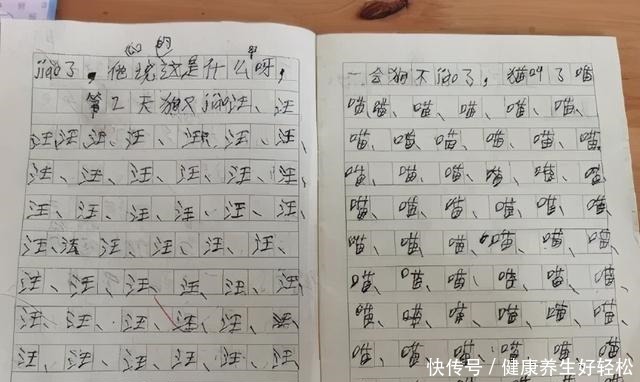 心的
jiao了，他说这是什么呀，
第2天狗又jiao汪、汪
汪汪、汪、汪、汪、汪、汪、
汪、汪、汪、汪、汪、汪、
汪、汪、汪、汪、汪、汪、
汪、汪、汪、汪、汪、汪、
汪、汪、汪、汪、汪、汪、
汪、汪、汪、汪、汪、汪、
汪、汪、汪、汪、汪、汪、
一会狗不jiao了，猫叫了喵
喵喵、喵、喵、喵、喵、
喵、喵、喵、喵、喵、喵、
喵、喵、喵、喵、喵、喵、
喵、喵、喵、喵、喵、喵、
喵、喵、喵、喵、喵、喵、
喵、喵、喵、喵、喵、喵、
喵、喵、喵、喵、喵、喵、
喵、喵、喵、喵、喵、喵、
快传号／健康养生好轻松